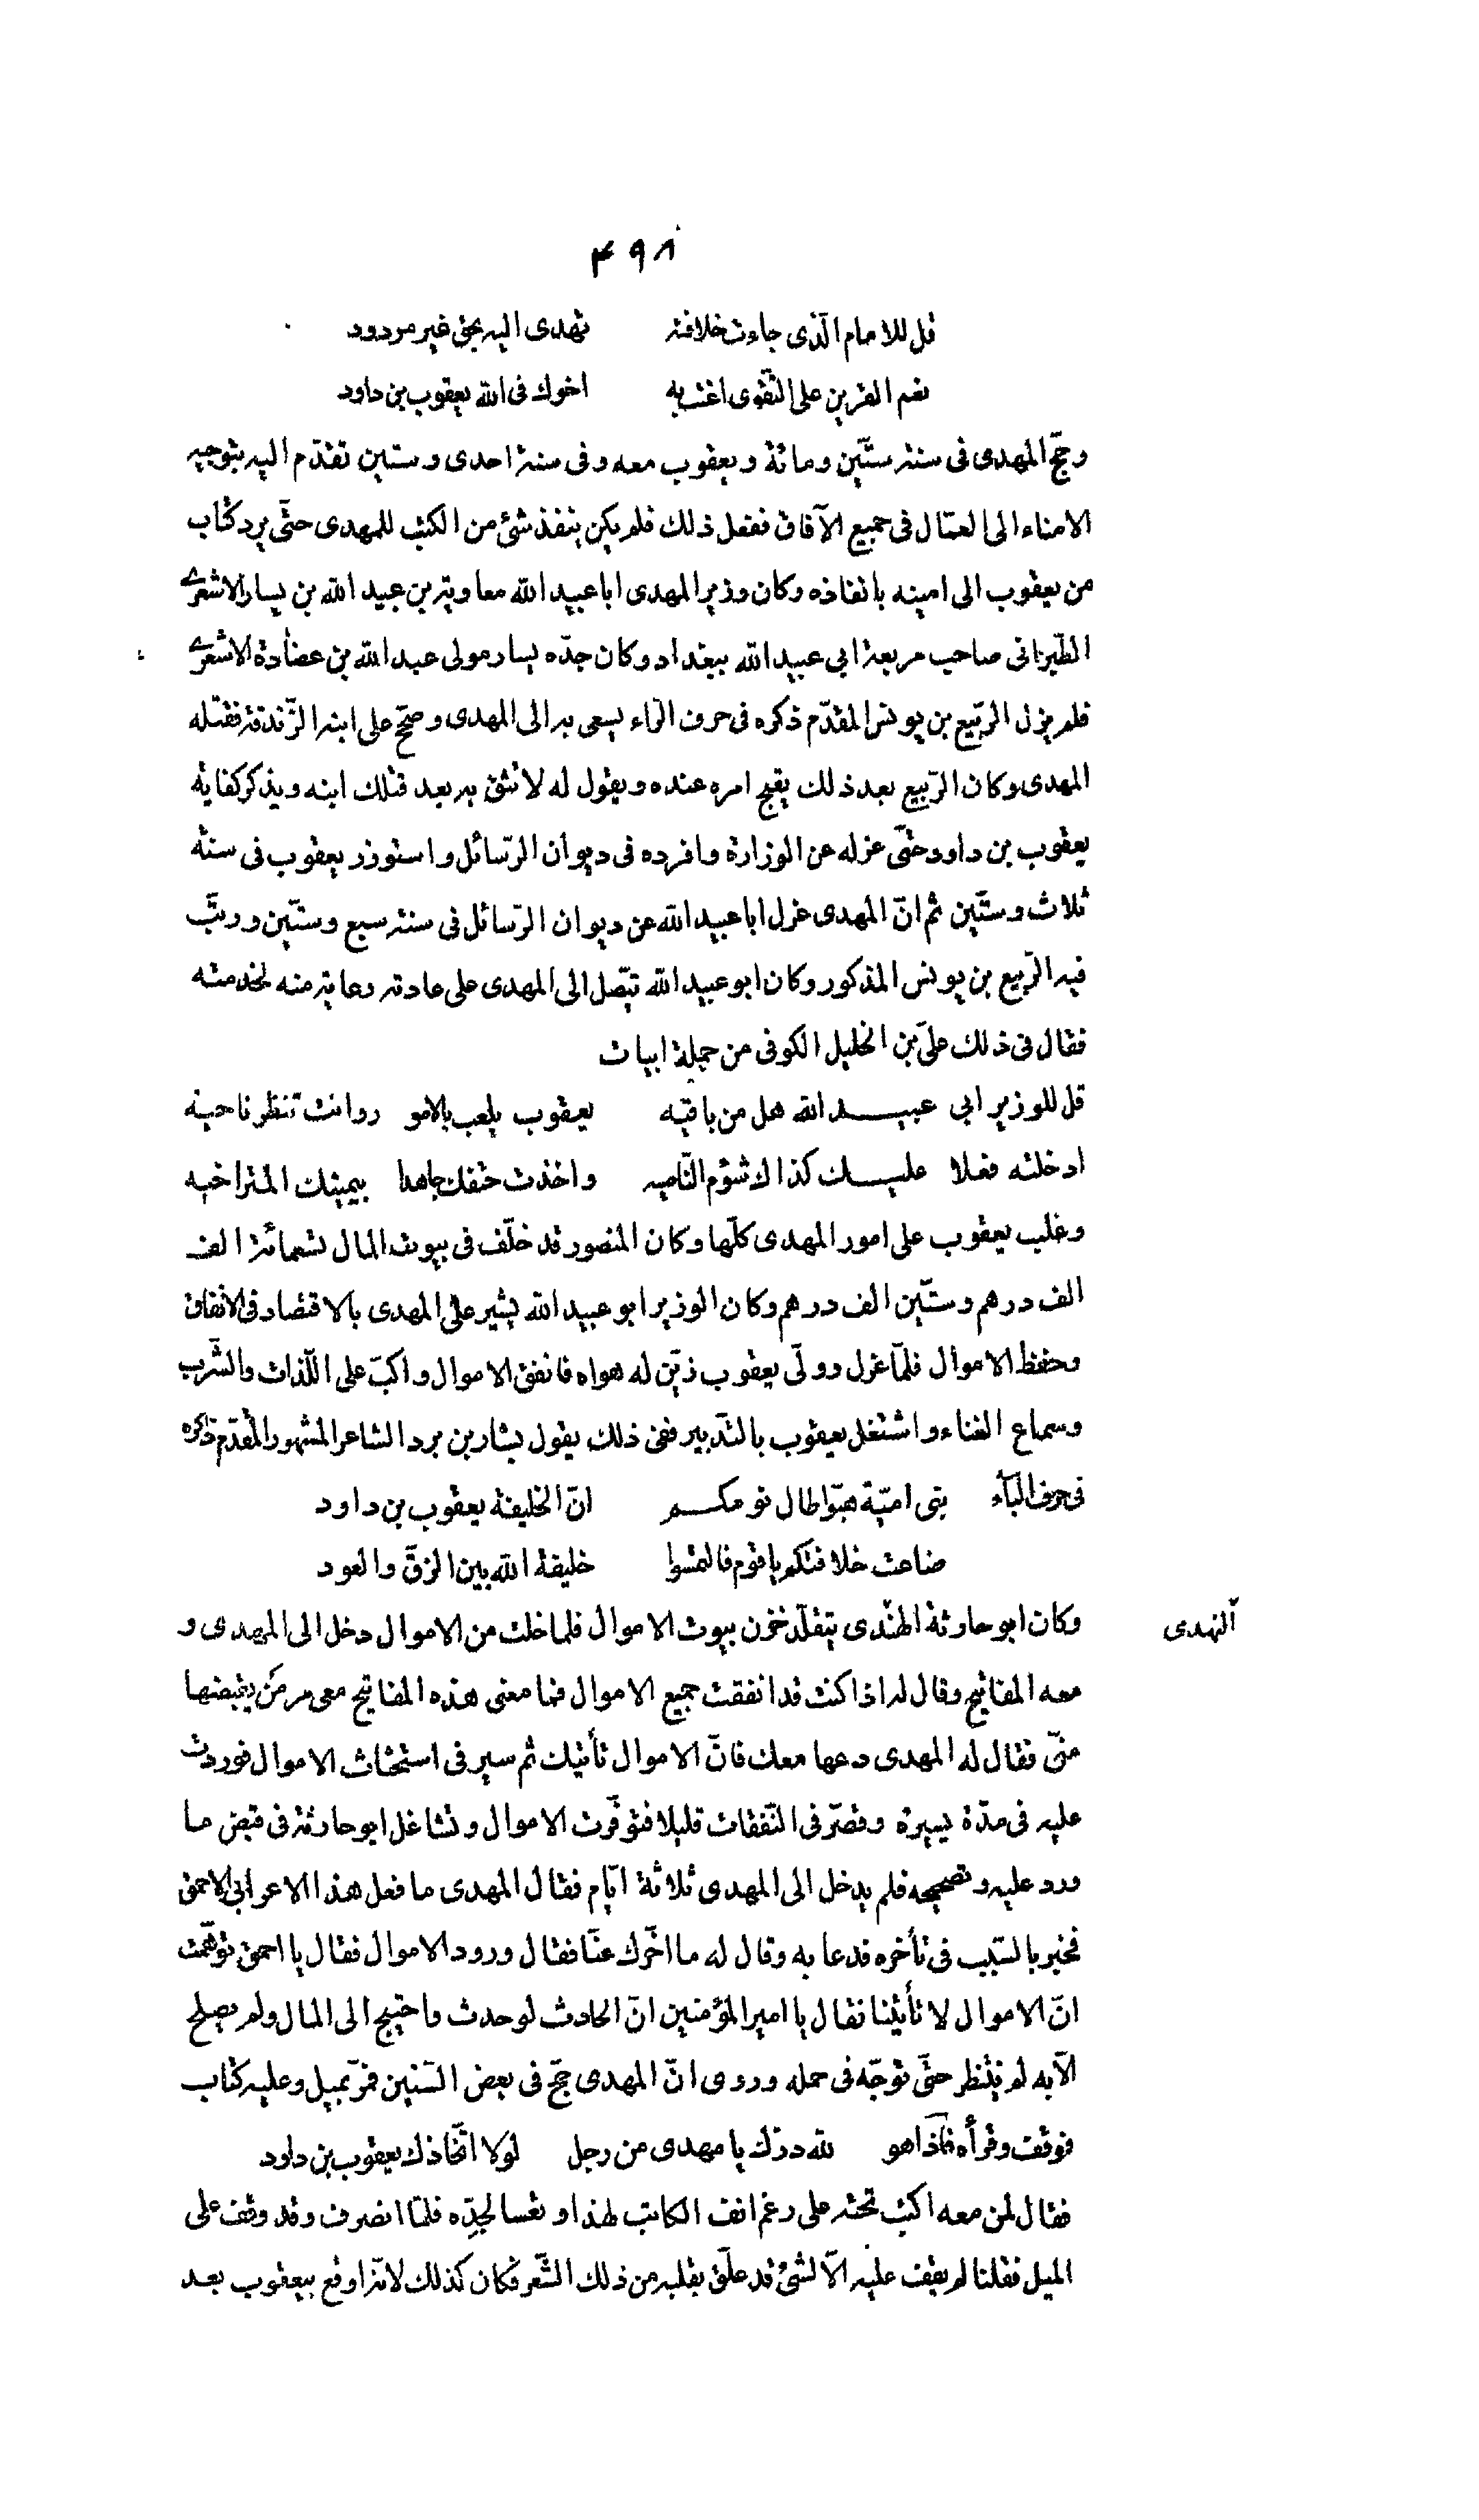 ۴۹۸
قل للامام الّذى جاءت خلافته تهدى اليه بحق غير مردود
نعم القرين على التّقوى اعنت به اخوك فى الله يعقوب بن داود
وحجّ المهدى فى سنة ستّين ومائة ويعقوب معه وفى سنة احدى وستين تقدّم اليه بتوجيه
الامناء الى العمّال فى جميع الآفاق ففعل ذلك فلم يكن ينفذ شئ من الكتب للمهدى حتّى يرد كتاب
من يعقوب الى امينه بانفاذه وكان وزير المهدى ابا عبيد الله معاوية بن عبيد الله بن يسار الاشعرى
الطّبرانى صاحب مربعة ابى عبيد الله ببغداد وكان جدّه يسار مولى عبد الله بن عضادة الاشعرى
فلم يزل الربّيع بن يونس المقدّم ذكره فى حرف الراء يسعى به الى المهدى وصحّ على ابنه الزّندقة فقتله
المهدى وكان الرّبيع بعد ذلك يقبح امره عنده ويقول له لا تثق به بعد قتلك ابنه ويذكر كفاية
يعقوب بن داود حتّى عزله عن الوزارة وافرده فى ديوان الرّسائل واستوزر يعقوب فى سنة
ثلاث وستّين ثم انّ المهدى عزل ابا عبيد الله عن ديوان الرّسائل فى سنة سبع وستّين ورتّب
فيه الرّبيع بن يونس المذكور وكان ابو عبيد الله يتصل الى المهدى على عادته رعاية منه لخدمته
فقال فى ذلك علىّ بن الخليل الكوفى من جملة ابيات
قل للوزير ابى عبيد الله هل من باقيه يعقوب يلعب بالامو ر وانت تنظر ناحيه
ادخلته فعلا عليك كذاك شؤم النّاصيه واخذت حتفك جاهدا بيمينك المتراخيه
وغلب يعقوب على امور المهدى كلّها وكان المنصور قد خلّف فى بيوت المال تسعمائة الف
الف درهم وستّين الف درهم وكان الوزير ابو عبيد الله يشير على المهدى بالاقتصاد فى الانفاق
وحفظ الاموال فلمّا عزل وولّى يعقوب زيّن له هواه فانفق الاموال واكبّ على اللّذات والشّرب
وسماع الغناء واشتغل يعقوب بالتّدبير ففى ذلك يقول بشار بن برد الشاعر المشهور المتقدّم ذكره
فى حرف الباء بنى اميّة هبّوا طال نومكم انّ الخليفة يعقوب بن داود
ضاعت خلافتكم يا قوم فالتمسوا خليفة الله بين الزقّ والعود
وكان ابو حارثة الهندى يتقلّد خزن بيوت الاموال فلما خلت من الاموال دخل الى المهدى و
النهدى
معه المفاتيح وقال له اذا كنت قد انفقت جميع الاموال فما معنى هذه المفاتيح معى مر من يقبضها
منّى فقال له المهدى دعها معك فانّ الاموال تأتيك ثم سير فى استحثاث الاموال فوردت
عليه فى مدّة يسيرة وقصّر فى النّفقات قليلا فتوفّرت الاموال وتشاغل ابو حارثة فى قبض ما
ورد عليه وتصحيحه فلم يدخل الى المهدى ثلاثة ايّام فقال المهدى ما فعل هذا الاعرابى الاحمق
فخبر بالسّبب فى تأخره فدعا به وقال له ما اخّرك عنّا فقال ورود الاموال فقال يا احمق توهّمت
انّ الاموال لا تأتينا فقال يا امير المؤمنين انّ الحادث لو حدث واحتيج الى المال ولم يصلح
الّا به لم ينتظر حتّى توجّه فى حمله وروى انّ المهدى حجّ فى بعض السّنين فمرّ بميل وعليه كتاب
فوقف وقرأه فاذا هو لله درّك يا مهدى من رجل لولا اتّخاذك يعقوب بن داود
فقال لمن معه اكتب تحته على رغم انف الكاتب لهذا وتعسا لجدّه فلمّا انصرف وقد وقف على
الميل فقلنا لم يقف عليه الّا لشئ قد علّق بقلبه من ذلك الشّعر فكان كذلك لانّه اوقع بيعقوب بعد